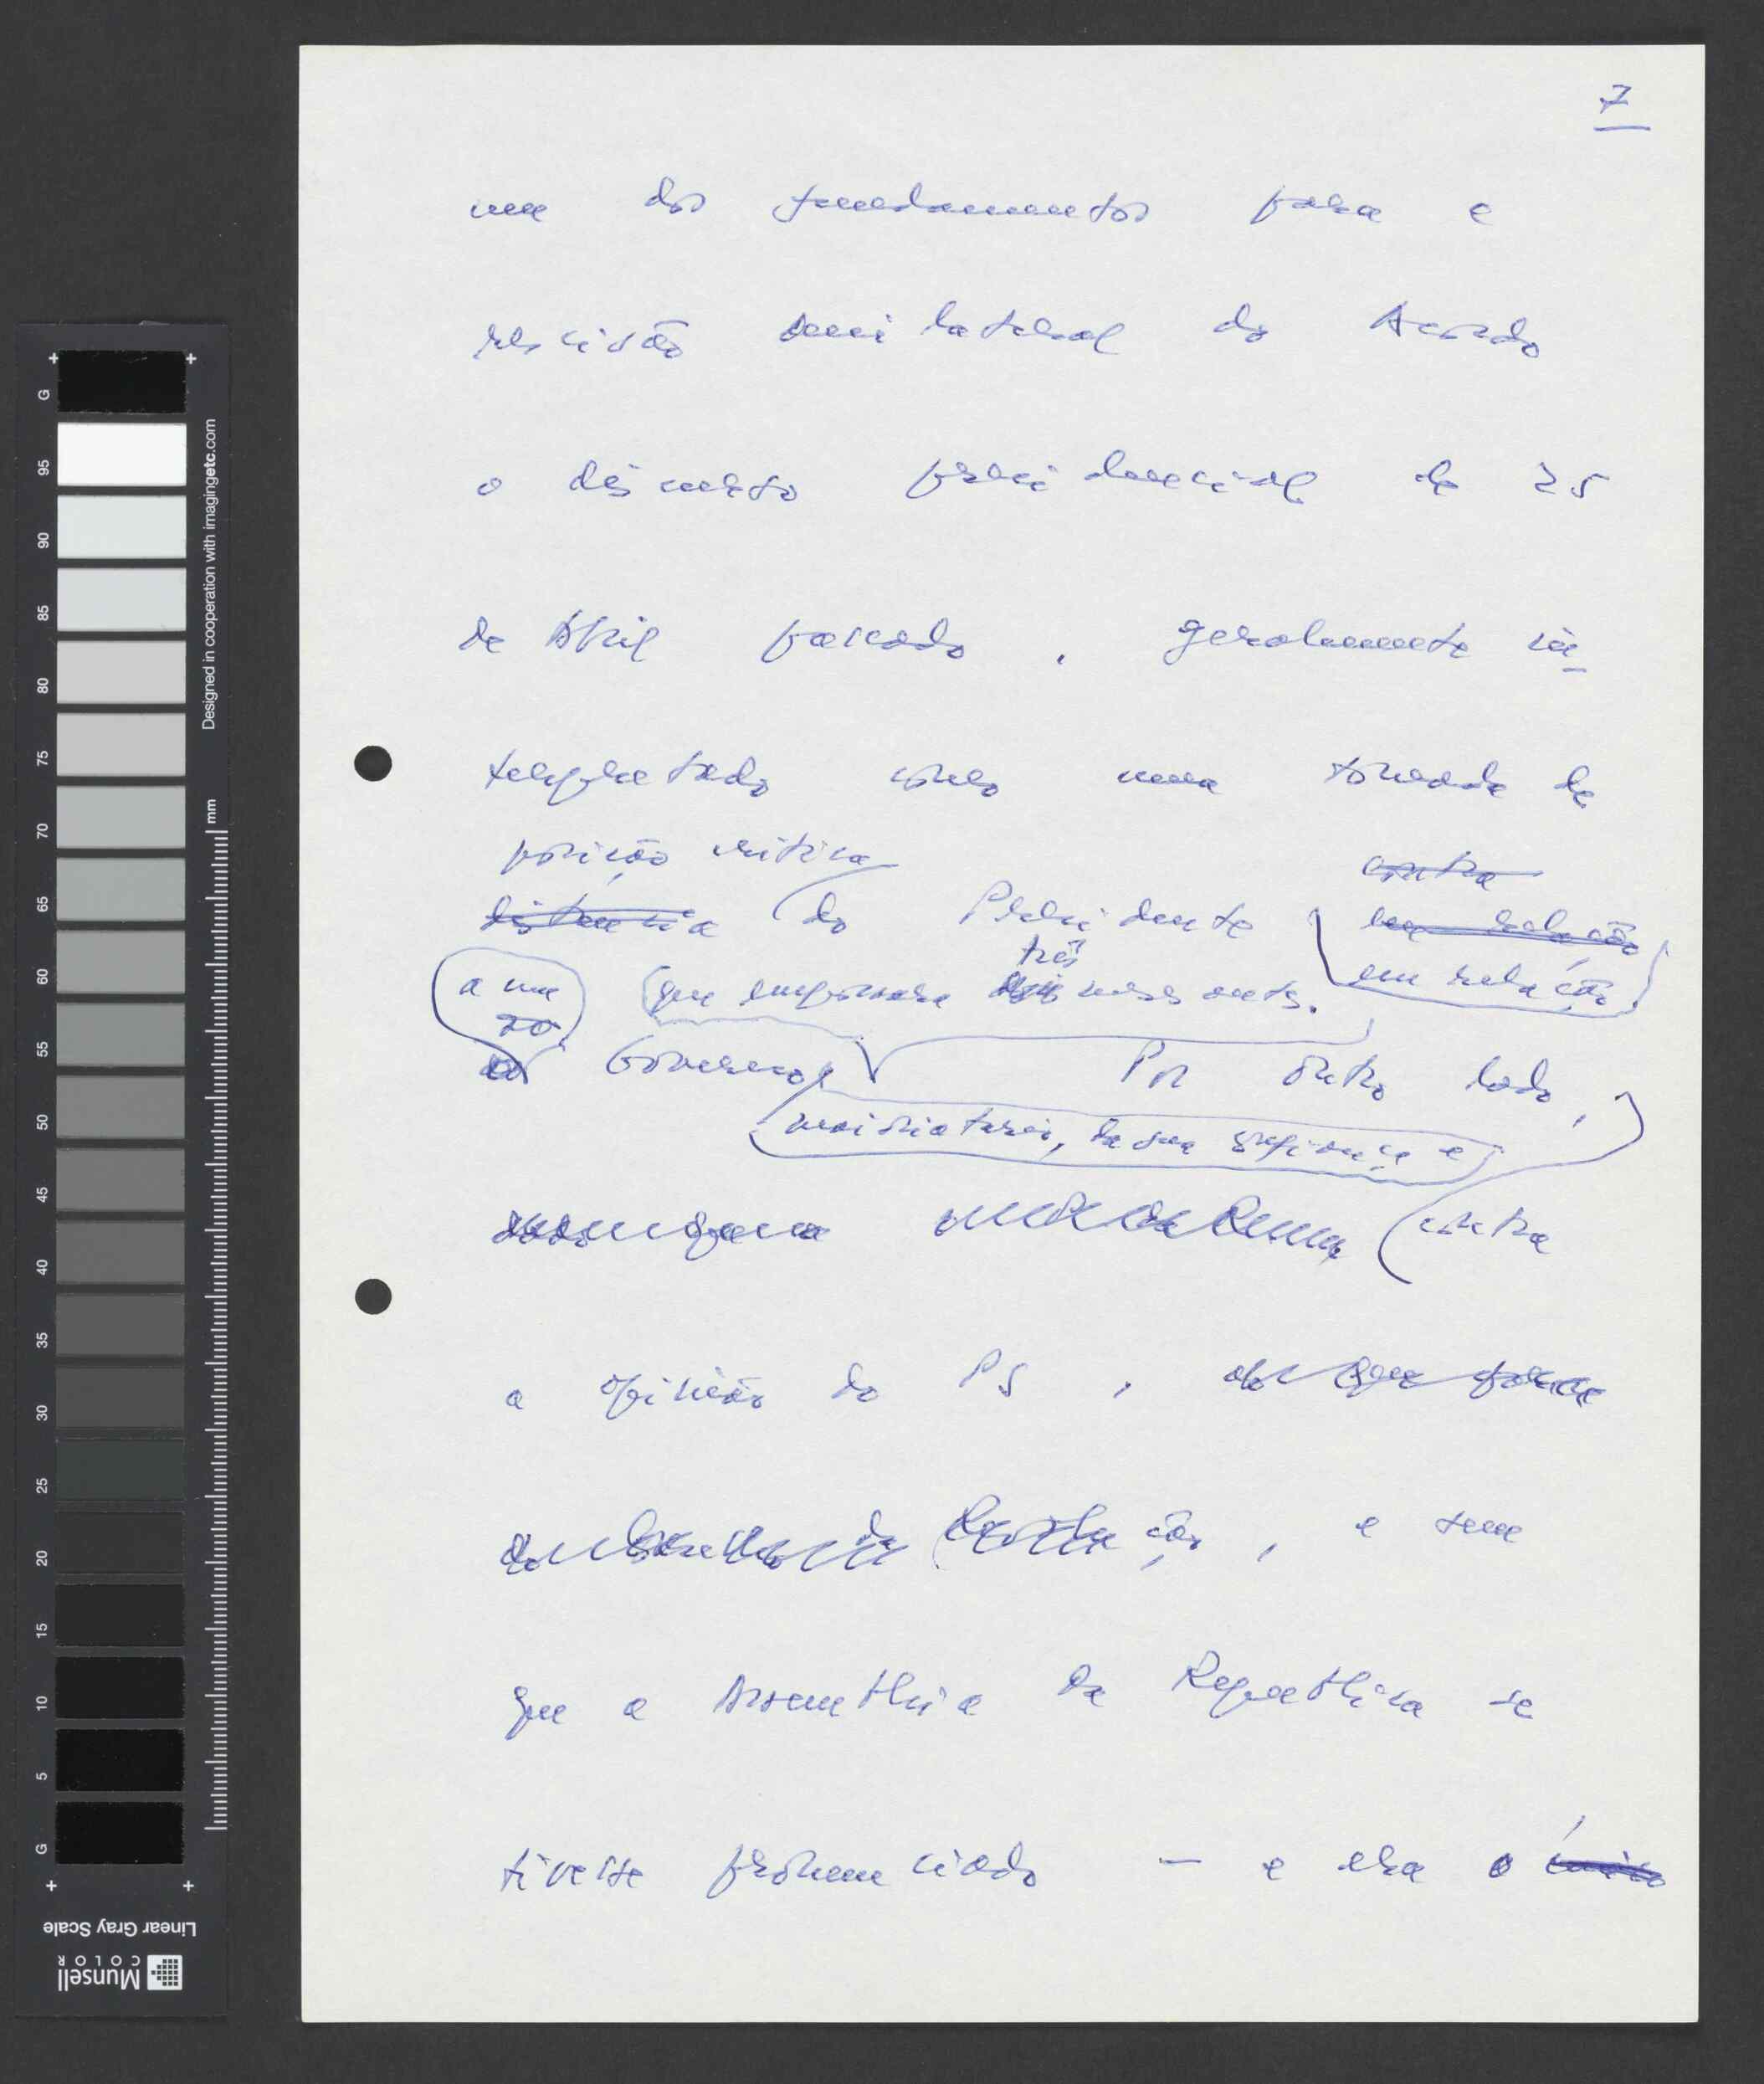 7
um dos fundamentos para a
rescisão unilateral do Acordo
o discurso presidencial de 25
de Abril passado, geralmente in-
terpretado como uma tomada de
posição crítica
contra
distância do Presidente em relação
três
a um que empossara meses antes. em relação
ao
Governo Por outro lado,
ministerial, da sua confiança e
contra
a opinião do PS,
do Conselho da Revolução, e sem
que a Assembleia da República se
tivesse pronunciado — e era o único
G 95 90 85 80 75 70 65 60 55 50 45 40 35 30 25 20 15 10 5 G
Designed in cooperation with imagingetc.com
mm
Linear Gray Scale
Munsell
COLOR